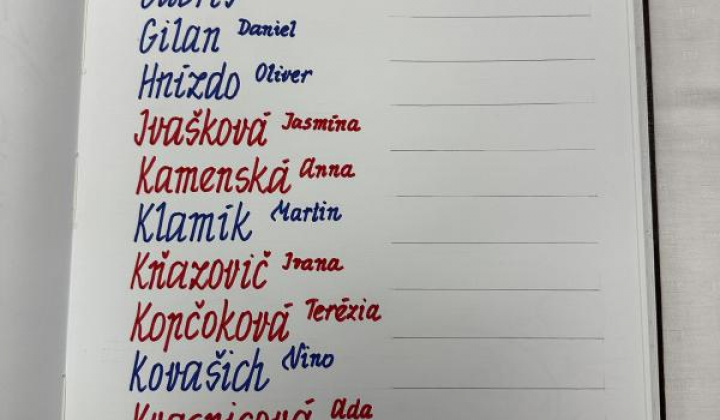 Gilan Daniel
Hnízdo Oliver
Ivašková Jasmína
Kamenská Anna
Klamík Martin
Kňazovič Ivana
Kopčoková Terézia
Kovašich Nino
Ada